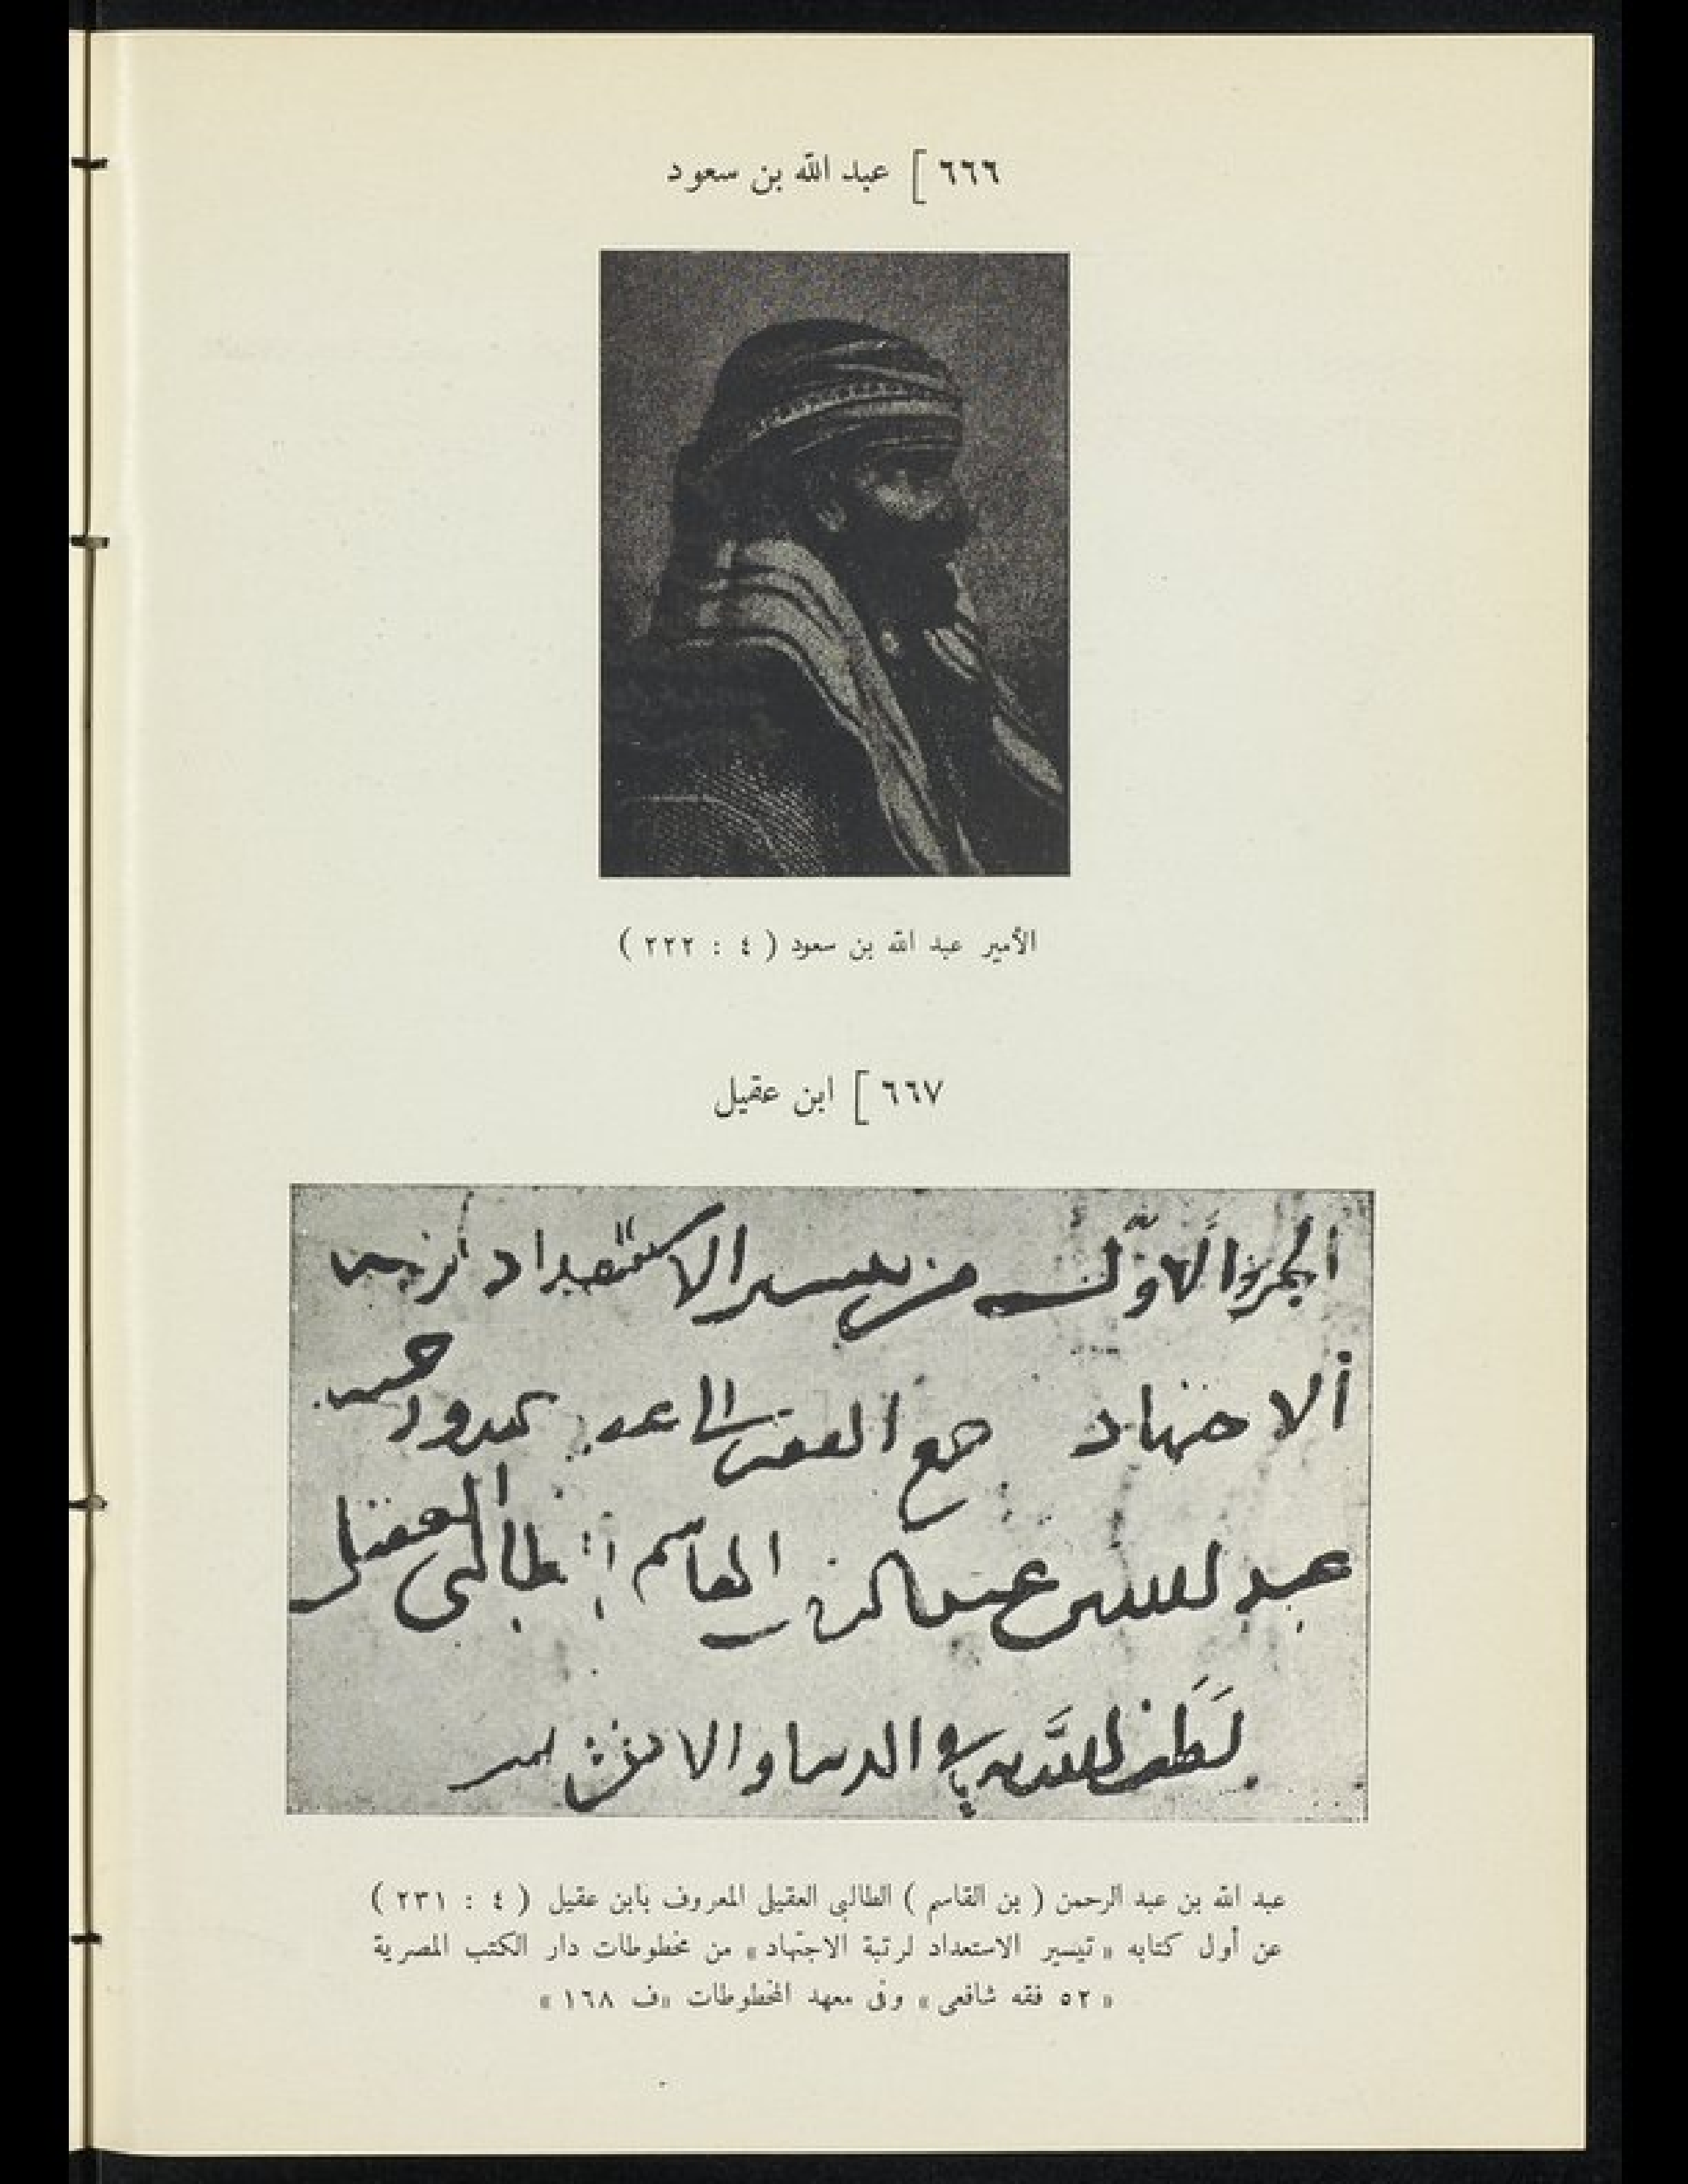 ٦٦٦ [ عبد الله بن سعود
الأمير عبد الله بن سعود ( ٤ : ٢٢٢ )
٦٦٧ [ ابن عقيل
الجزء الأول من تيسير الاستعداد لرتبة
الاجتهاد جمع الفقير الى عفو
عبد الله بن عبد الرحمن بن القاسم الطالبى العقيلى
لطف الله به فى الدنيا والاخرة
عبد الله بن عبد الرحمن ( بن القاسم ) الطالبى العقيلى المعروف بابن عقيل ( ٤ : ٢٣١ )
عن أول كتابه « تيسير الاستعداد لرتبة الاجتهاد » من مخطوطات دار الكتب المصرية
« ٥٢ فقه شافعى » وفى معهد المخطوطات « ف ١٦٨ »